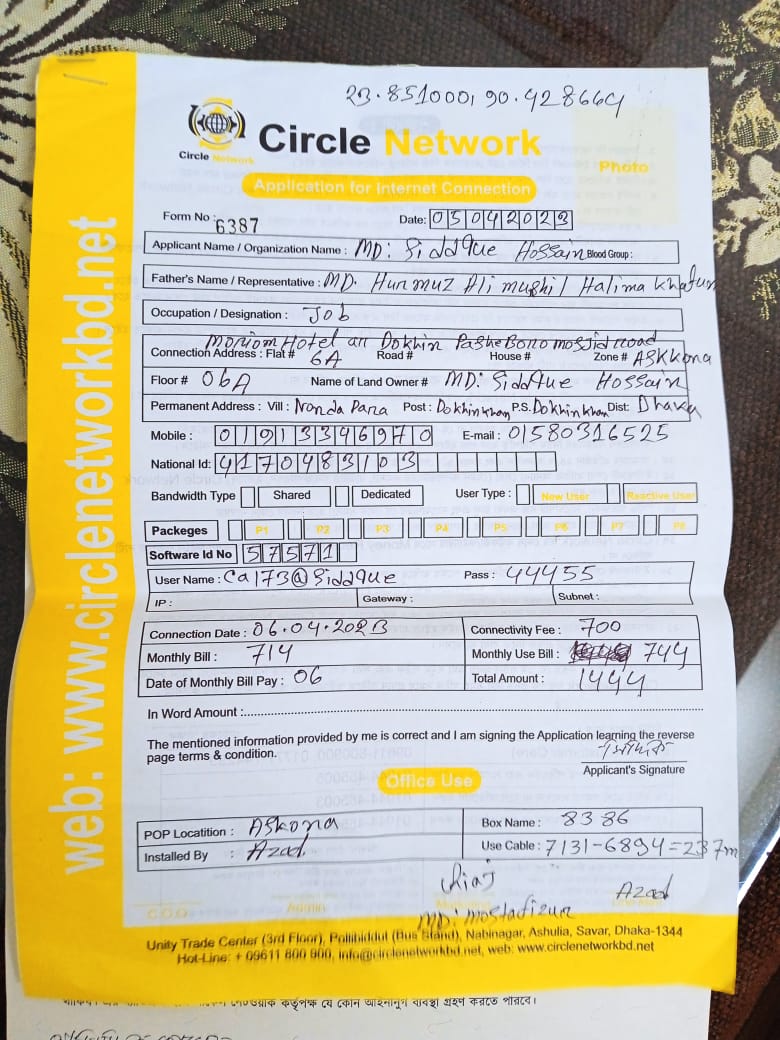 23.851000, 90.428664
Circle Network
Circle Network
Photo
Application for Internet Connection
Form No : 6387
Date: 05042023
Applicant Name / Organization Name : MD: Siddque Hossain Blood Group :
Father's Name / Representative : MD. Hurmuz Ali munshi / Halima Khatun
Occupation / Designation : Job
Moriom Hotel Dokhin Pashe Bono mosjid road
Connection Address : Flat # 6A Road # House # Zone # ASKKona
Floor # 06A Name of Land Owner # MD: Siddque Hossain
Permanent Address : Vill : Nonda Para Post : Dokhinkhan P.S. Dokhinkhan Dist: Dhaka
Mobile : 01913346970 E-mail : 01580316525
National Id: 4170483103
Bandwidth Type Shared Dedicated User Type : New User Reactive User
Packeges P1 P2 P3 P4 P5 P6 P7 P8
Software Id No 57571
User Name : Ca173@Siddque Pass : 44455
IP : Gateway : Subnet :
Connection Date : 06.04.2023 Connectivity Fee : 700
Monthly Bill : 714 Monthly Use Bill : 744
Date of Monthly Bill Pay : 06 Total Amount : 1444
In Word Amount :
The mentioned information provided by me is correct and I am signing the Application learning the reverse
page terms & condition.
Applicant's Signature
Office Use
POP Locatition : Askona Box Name : 8386
Installed By : Azad Use Cable : 7131-6894=237m
Riaj
Azad
MD: Mostafizur
C.O.O Admin
Unity Trade Center (3rd Floor), Pollibiddut (Bus Stand), Nabinagar, Ashulia, Savar, Dhaka-1344
Hot-Line: + 09611 800 900, info@circlenetworkbd.net, web: www.circlenetworkbd.net
web: www.circlenetworkbd.net
কর্তৃপক্ষ যে কোন আইনানুগ ব্যবস্থা গ্রহণ করতে পারবে।